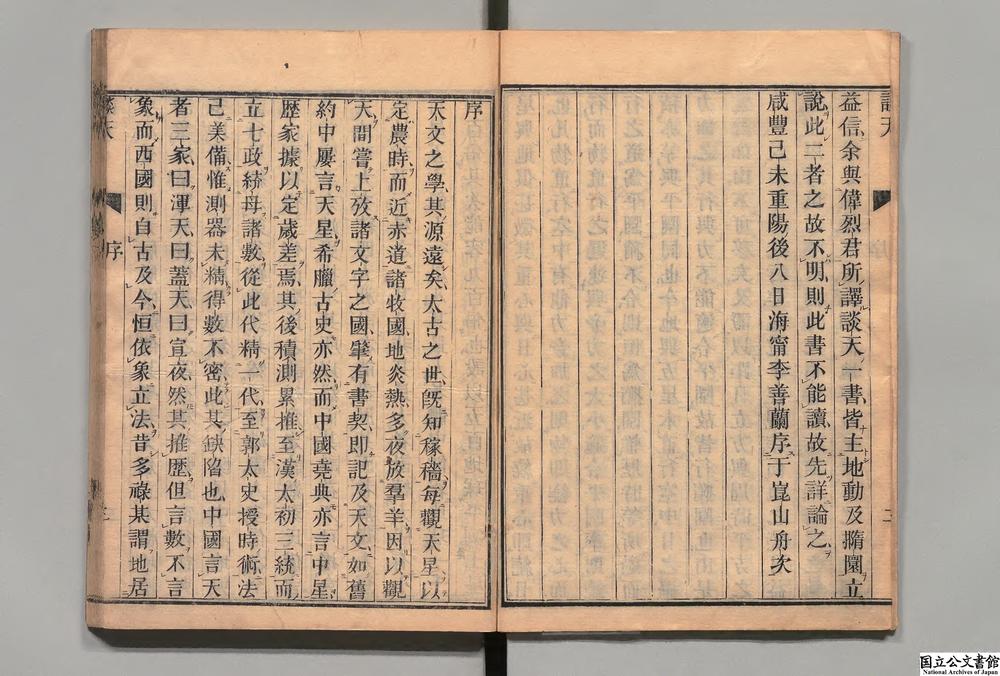 談天
二
益信余與偉烈君所譯談天一書皆主地動及撱圜立
說此二者之故不明則此書不能讀故先詳論之
咸豐己未重陽後八日海甯李善蘭序于崑山舟次
序
天文之學其源遠矣太古之世旣知稼穡每觀天星以
定農時而近赤道諸牧國地炎熱多夜放羣羊因以觀
天間嘗上攷諸文字之國肇有書契卽記及天文如舊
約中屢言天星希臘古史亦然而中國堯典亦言中星
歷家據以定歲差焉其後積測累推至漢太初三統而
立七政統母諸數從此代精一代至郭太史授時術法
已美備惟測器未精得數不密此其缺陷也中國言天
者三家曰渾天曰蓋天曰宣夜然其推歷但言數不言
象而西國則自古及今恒依象立法昔多祿某謂地居
談天
序
三
国立公文書館
National Archives of Japan